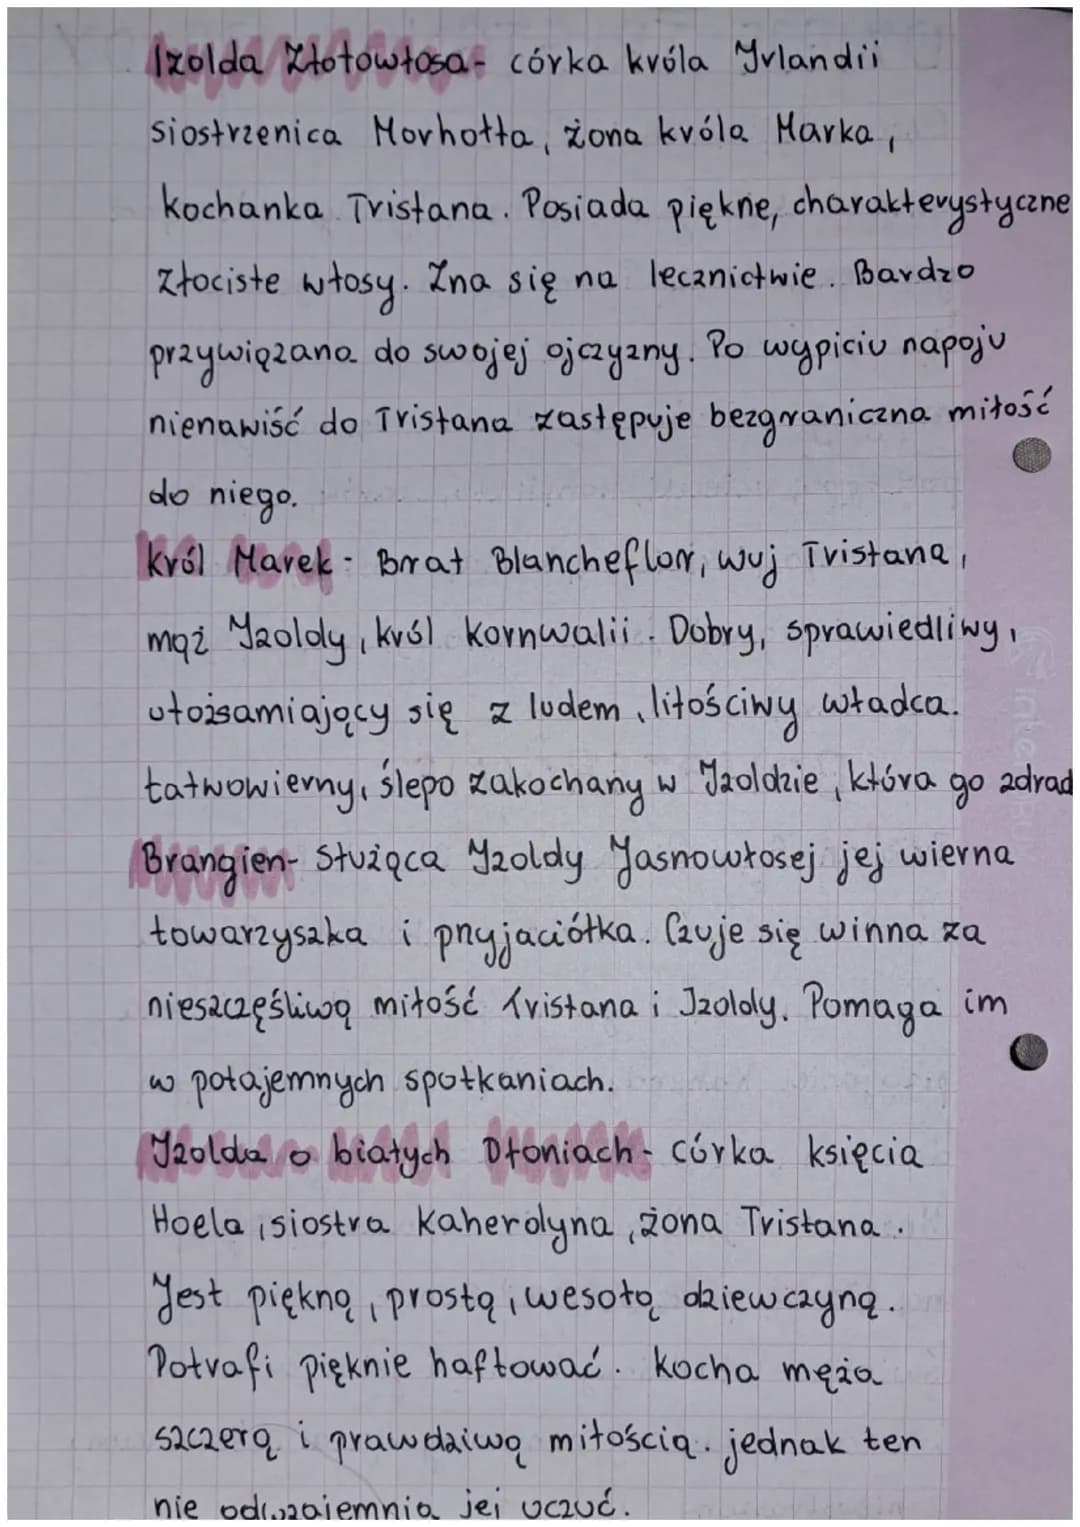 Izolda Złotowłosa- córka króla Irlandii
siostrzenica Morhołta, żona króla Marka,
kochanka Tristana. Posiada piękne, charakterystyczne
złociste włosy. Zna się na lecznictwie. Bardzo
przywiązana do swojej ojczyzny. Po wypiciu napoju
nienawiść do Tristana zastępuje bezgraniczna miłość
do niego.
Król Marek- Brat Blancheflor, wuj Tristana,
mąż Izoldy, król Kornwalii. Dobry, sprawiedliwy,
utożsamiający się z ludem, litościwy władca.
łatwowierny, ślepo zakochany w Izoldzie, która go zdrad
Brangien- Służąca Izoldy Jasnowłosej jej wierna
towarzyszka i przyjaciółka. Czuje się winna za
nieszczęśliwą miłość Tristana i Izoldy. Pomaga im
w potajemnych spotkaniach.
Izolda o białych Dłoniach- córka księcia
Hoela, siostra Kaherdyna, żona Tristana.
Jest piękną, prostą, wesołą dziewczyną.
Potrafi pięknie haftować. Kocha męża
szczerą i prawdziwą miłością. jednak ten
nie odwzajemnia jej uczuć.